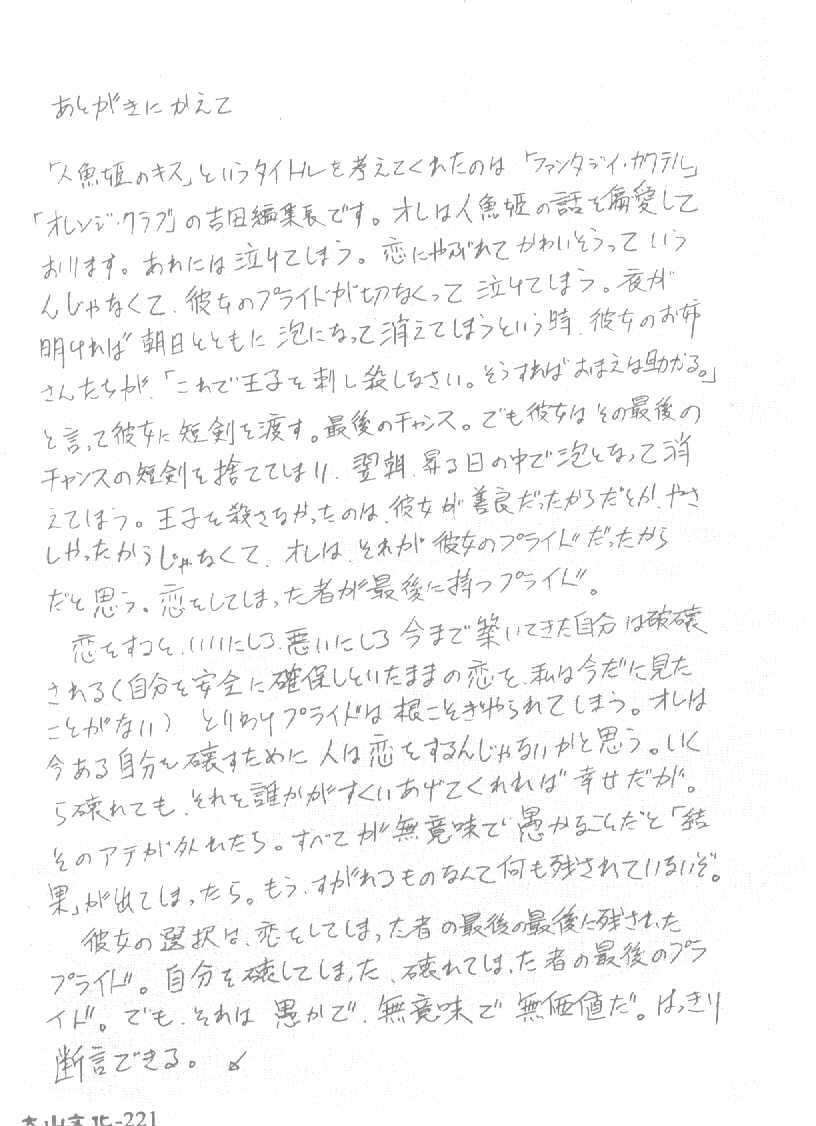 あとがきにかえて
「人魚姫のキス」というタイトルを考えてくれたのは「ファンタジイ・カクテル」
「オレンジ・クラブ」の吉田編集長です。オレは人魚姫の話を偏愛して
おります。あれには泣けてしまう。恋にやぶれてかわいそうっていう
んじゃなくて、彼女のプライドが切なくって泣けてしまう。夜が
明ければ朝日とともに泡になって消えてしまうという時、彼女のお姉
さんたちが、「これで王子を刺し殺しなさい。そうすればおまえは助かる。」
と言って彼女に短剣を渡す。最後のチャンス。でも彼女はその最後の
チャンスの短剣を捨ててしまい、翌朝、昇る日の中で泡となって消
えてしまう。王子を殺さなかったのは、彼女が善良だったからだとか、やさ
しかったからじゃなくて、オレは、それが彼女のプライドだったから
だと思う。恋をしてしまった者が最後に持つプライド。
恋をすると、いいにしろ、悪いにしろ今まで築いてきた自分は破壊
される(自分を安全に確保しといたままの恋を、私は今だに見た
ことがない) とりわけプライドは根こそぎやられてしまう。オレは
今ある自分を壊すために人は恋をするんじゃないかと思う。いく
ら壊れても、それを誰かがすくいあげてくれれば幸せだが。
そのアテが外れたら。すべてが無意味で愚かなことだと「結
果」が出てしまったら。もう、すがれるものなんて何も残されていないぞ。
彼女の選択は、恋をしてしまった者の最後の最後に残された
プライド。自分を壊してしまった、壊れてしまった者の最後のプラ
イド。でも、それは愚かで、無意味で無価値だ。はっきり
断言できる。
-221